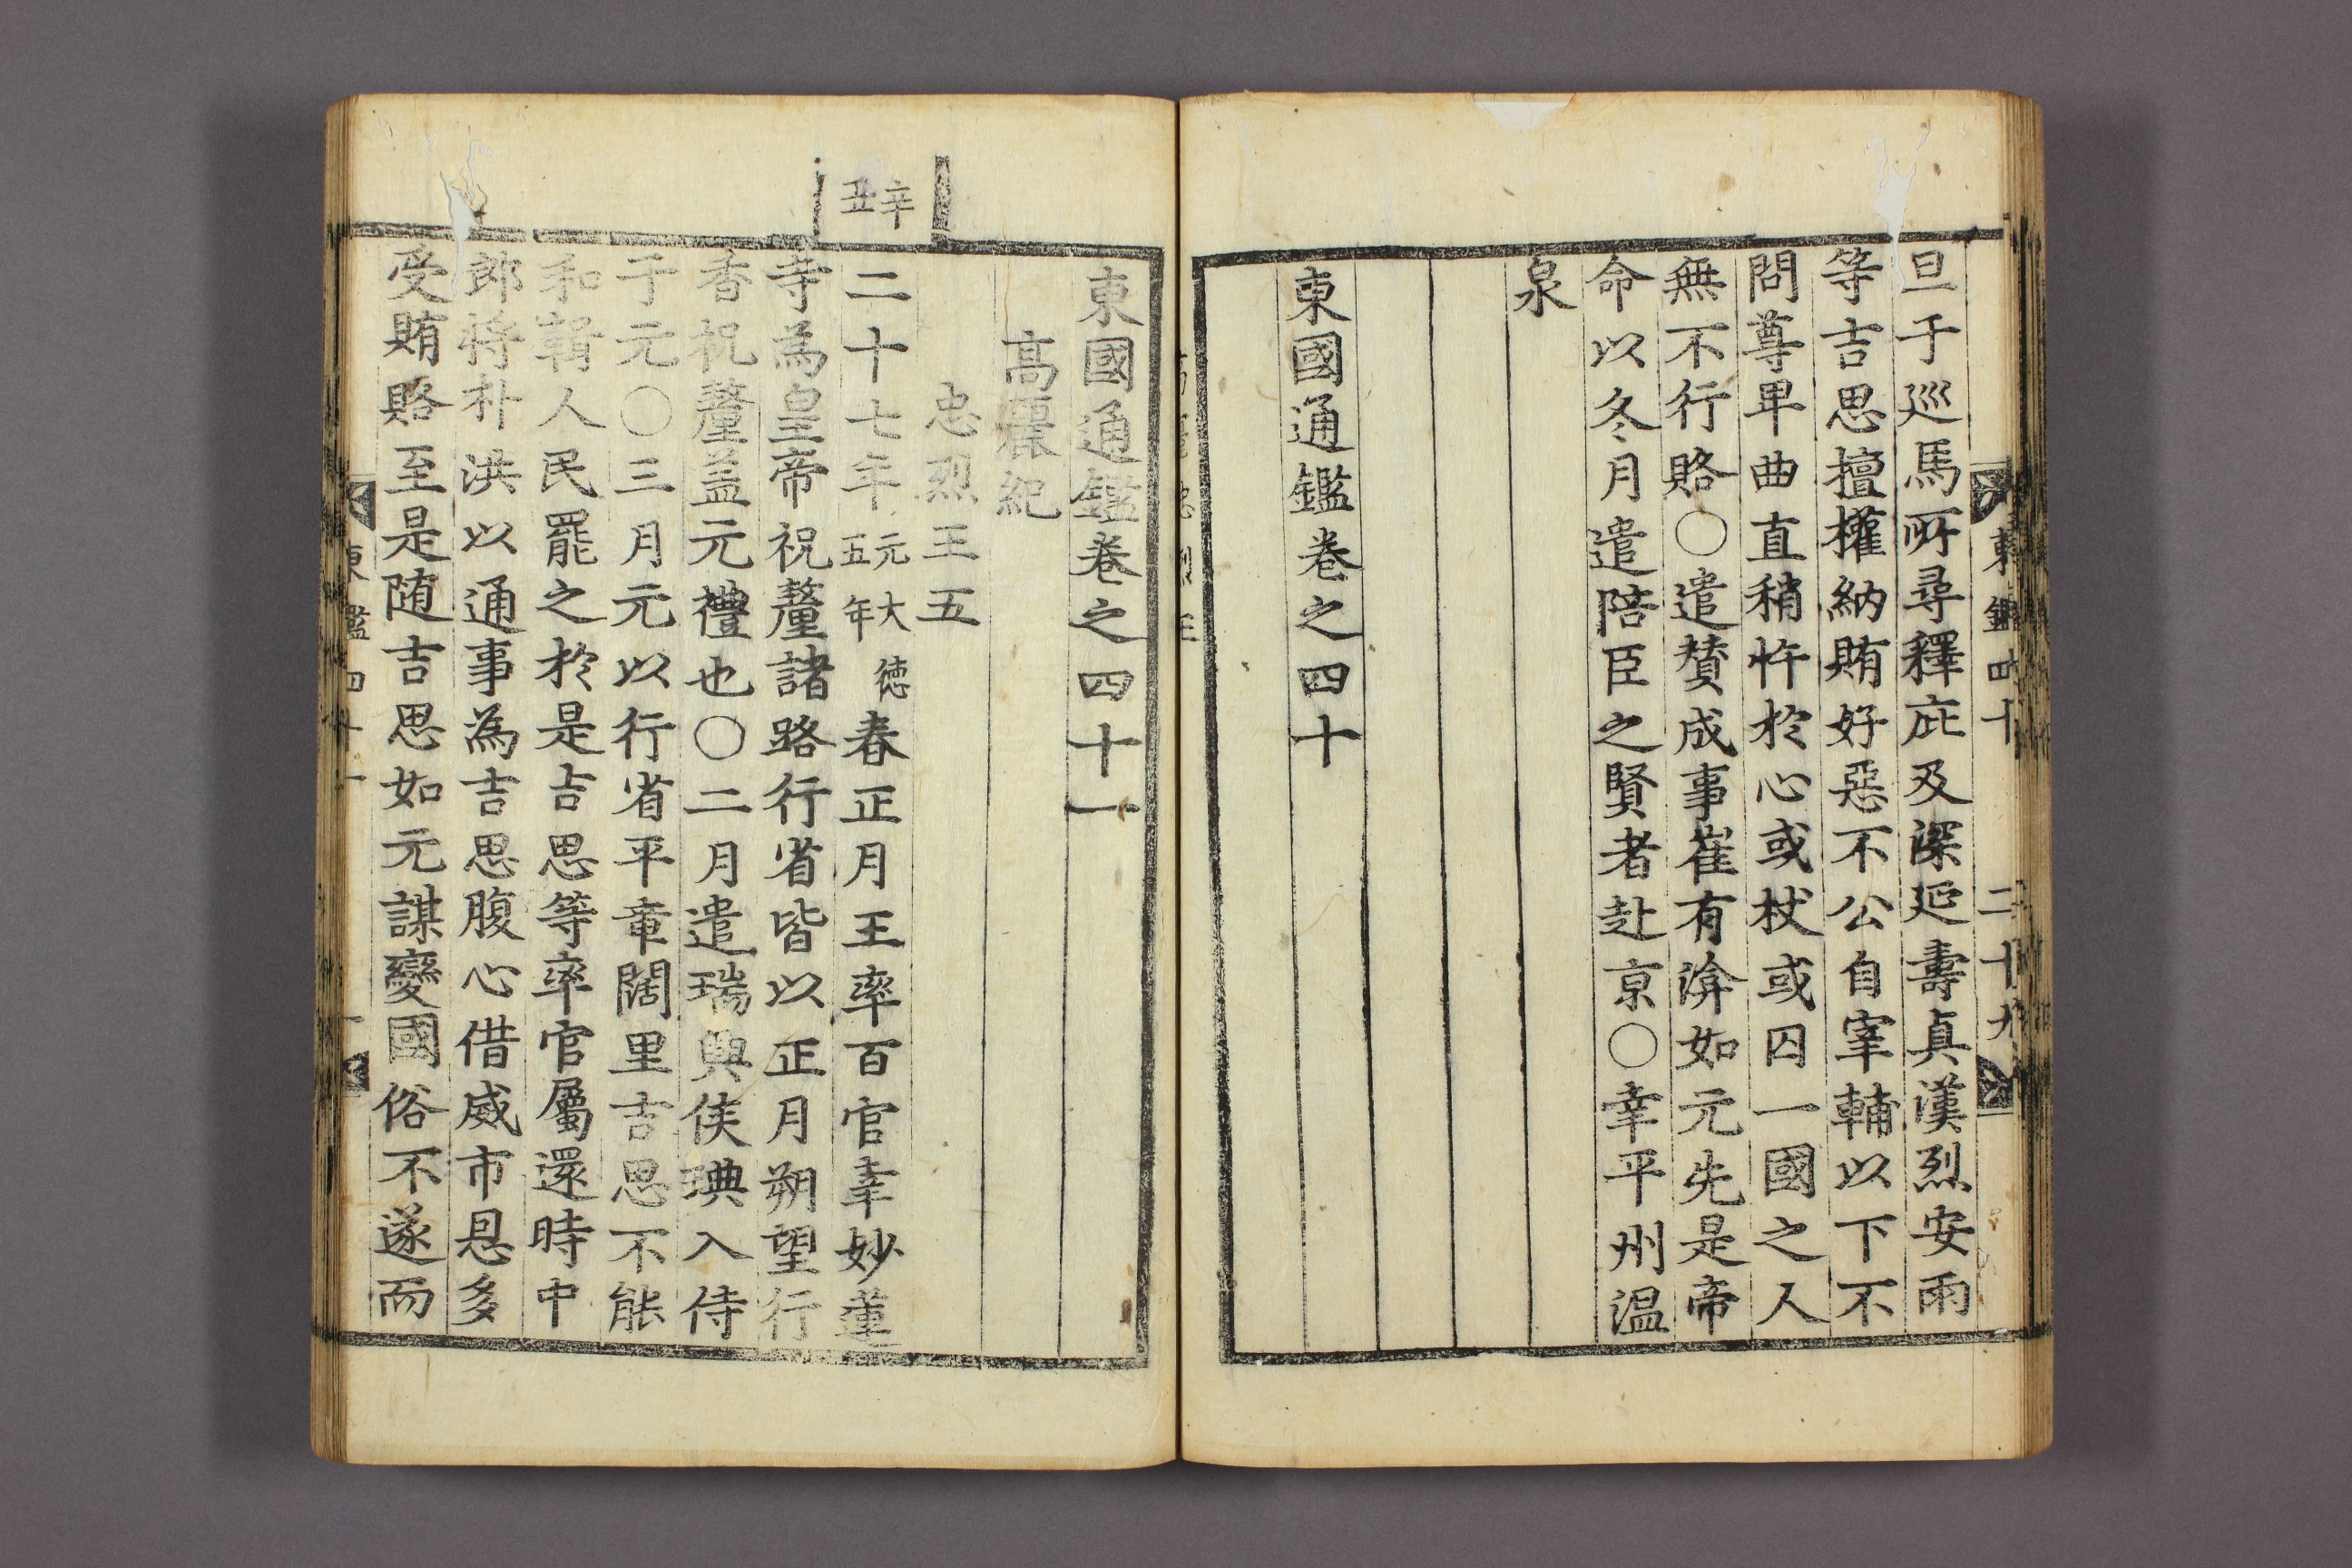 旦于巡馬所尋釋庇及深延壽眞漢烈安雨
等吉思擅權納賄好惡不公自宰輔以下不
問尊卑曲直稍忤於心或杖或囚一國之人
無不行賂○遣贊成事崔有渰如元先是帝
命以冬月遣陪臣之賢者赴京○幸平州温
泉
東國通鑑卷之四十
東國通鑑卷之四十一
高麗紀
忠烈王五
辛丑
二十七年元大德五年春正月王率百官幸妙蓮
寺為皇帝祝釐諸路行省皆以正月朔望行
香祝釐盖元禮也○二月遣瑞興侯琠入侍
于元○三月元以行省平章闊里吉思不能
和輯人民罷之於是吉思等率官屬還時中
郎將朴洪以通事為吉思腹心借威市恩多
受賄賂至是随吉思如元謀變國俗不遂而
東鑑四十 二十九
東鑑四十一 一